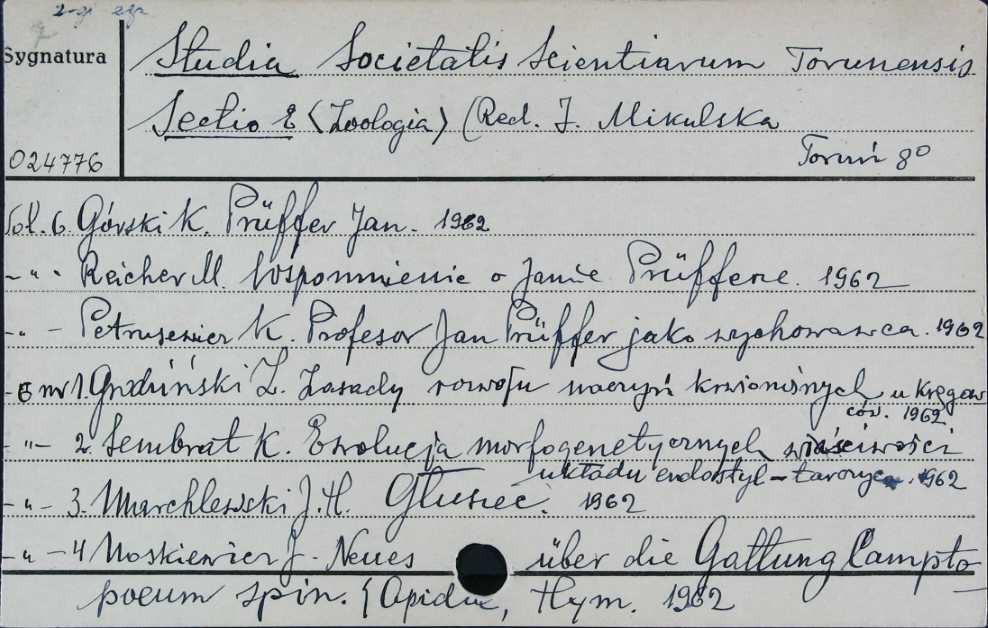 2-gi egz
Sygnatura
Studia Societatis Scientiarum Torunensis
Sectio E <Zoologia> (Red. J. Mikulska
024776
Toruń 8°
Vol. 6. Górski K. Prüffer Jan. 1962
- " - Reicher M. Wspomnienie o Janie Prüfferze. 1962
- " - Petrusewicz K. Profesor Jan Prüffer jako wychowawca. 1962
- 6 nr 1. Grodziński Z. Zasady rozwoju naczyń krwionośnych u kręgow
ców. 1962
- " - 2. Sembrat K. Ewolucja morfogenetycznych właściwości
układu endostyl - tarczyca. 1962
- " - 3. Marchlewski J.H. Głuszec. 1962
- " - 4 Noskiewicz J. Neues über die Gattung Campto-
poeum spin. (Apidae, Hym. 1962